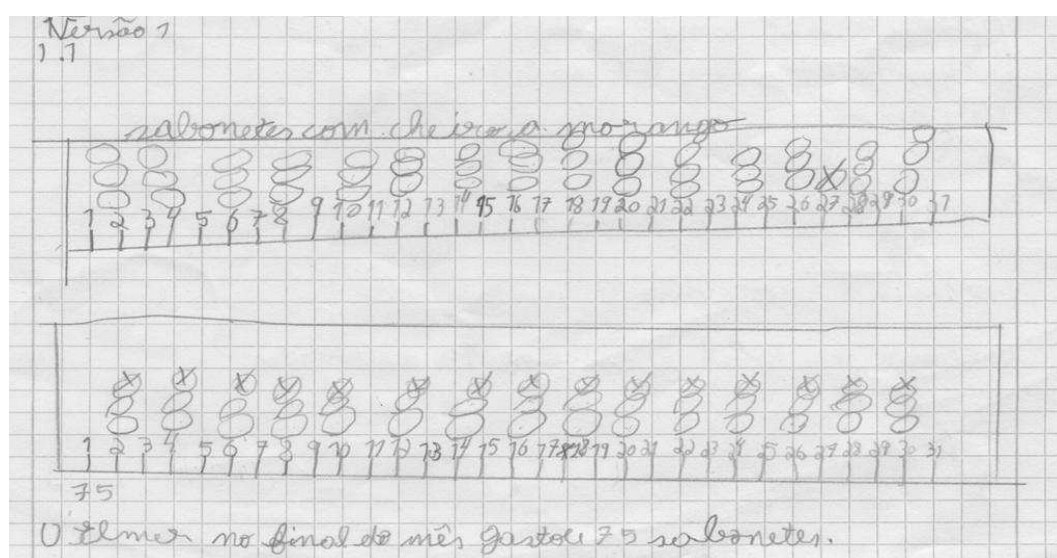 Versão 1
1.1
sabonetes com cheiro a morango
1 2 3 4 5 6 7 8 9 10 11 12 13 14 15 16 17 18 19 20 21 22 23 24 25 26 27 28 29 30 31
1 2 3 4 5 6 7 8 9 10 11 12 13 14 15 16 17 18 19 20 21 22 23 24 25 26 27 28 29 30 31
75
O Elmer no final do mês gastou 75 sabonetes.